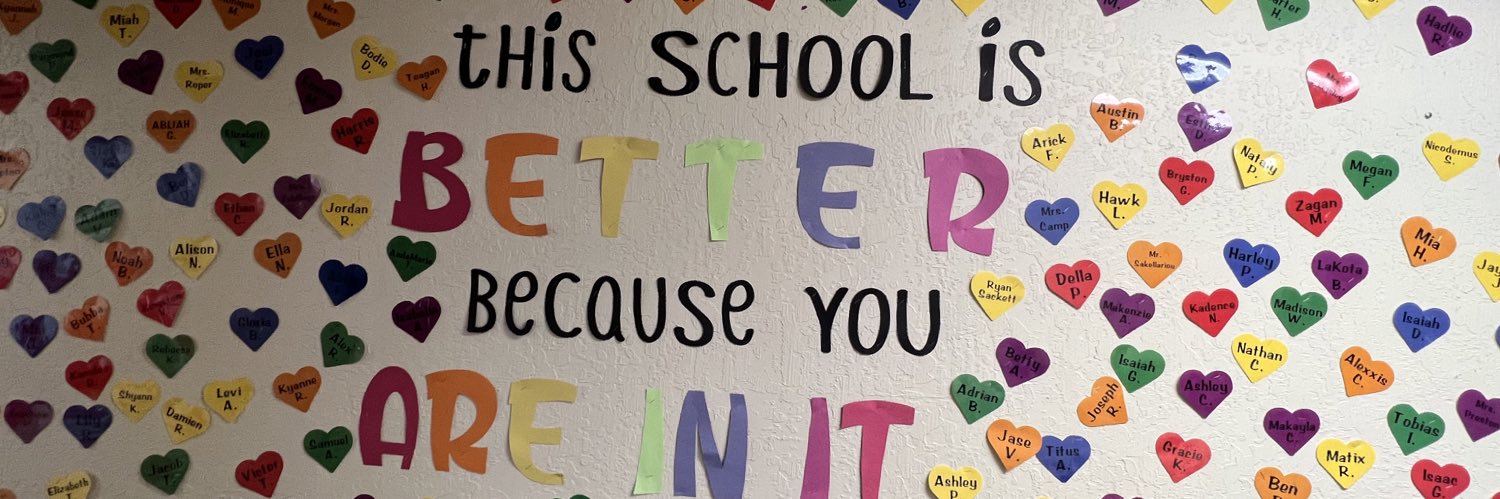 tHis SCHOOL is
BETTER
Because YOU
ARE IN IT
Miah
T.
Mrs.
Roper
Bodie
D.
Teagan
H.
ABLIAH
G.
Elizabeth
Harris
Jordan
R.
Ethan
C.
Alison
N.
Ella
N.
Noah
B.
Bubba
T.
Alex
R.
Shyann
K.
Damien
R.
Levi
A.
Kyanne
R.
Samuel
A.
Jacob
T.
Victor
Elizabeth
Hadlie
R.
Austin
B.
Arick
F.
Bryston
G.
Nataly
P.
Megan
F.
Nicodemus
S.
Hawk
L.
Mrs.
Camp
Zagan
M.
Mia
H.
Mr.
Sakellariou
Harley
P.
LaKota
B.
Ryan
Sackett
Della
P.
Makenzie
A.
Kadence
N.
Madison
W.
Isaiah
D.
Betty
A.
Isaiah
G.
Nathan
C.
Alexxis
C.
Adrian
B.
Joseph
R.
Ashley
C.
Mrs.
Preston
Jase
V.
Titus
A.
Gracie
K.
Makayla
C.
Tobias
I.
Matix
R.
Ashley
P.
Ben
Isaac
G.